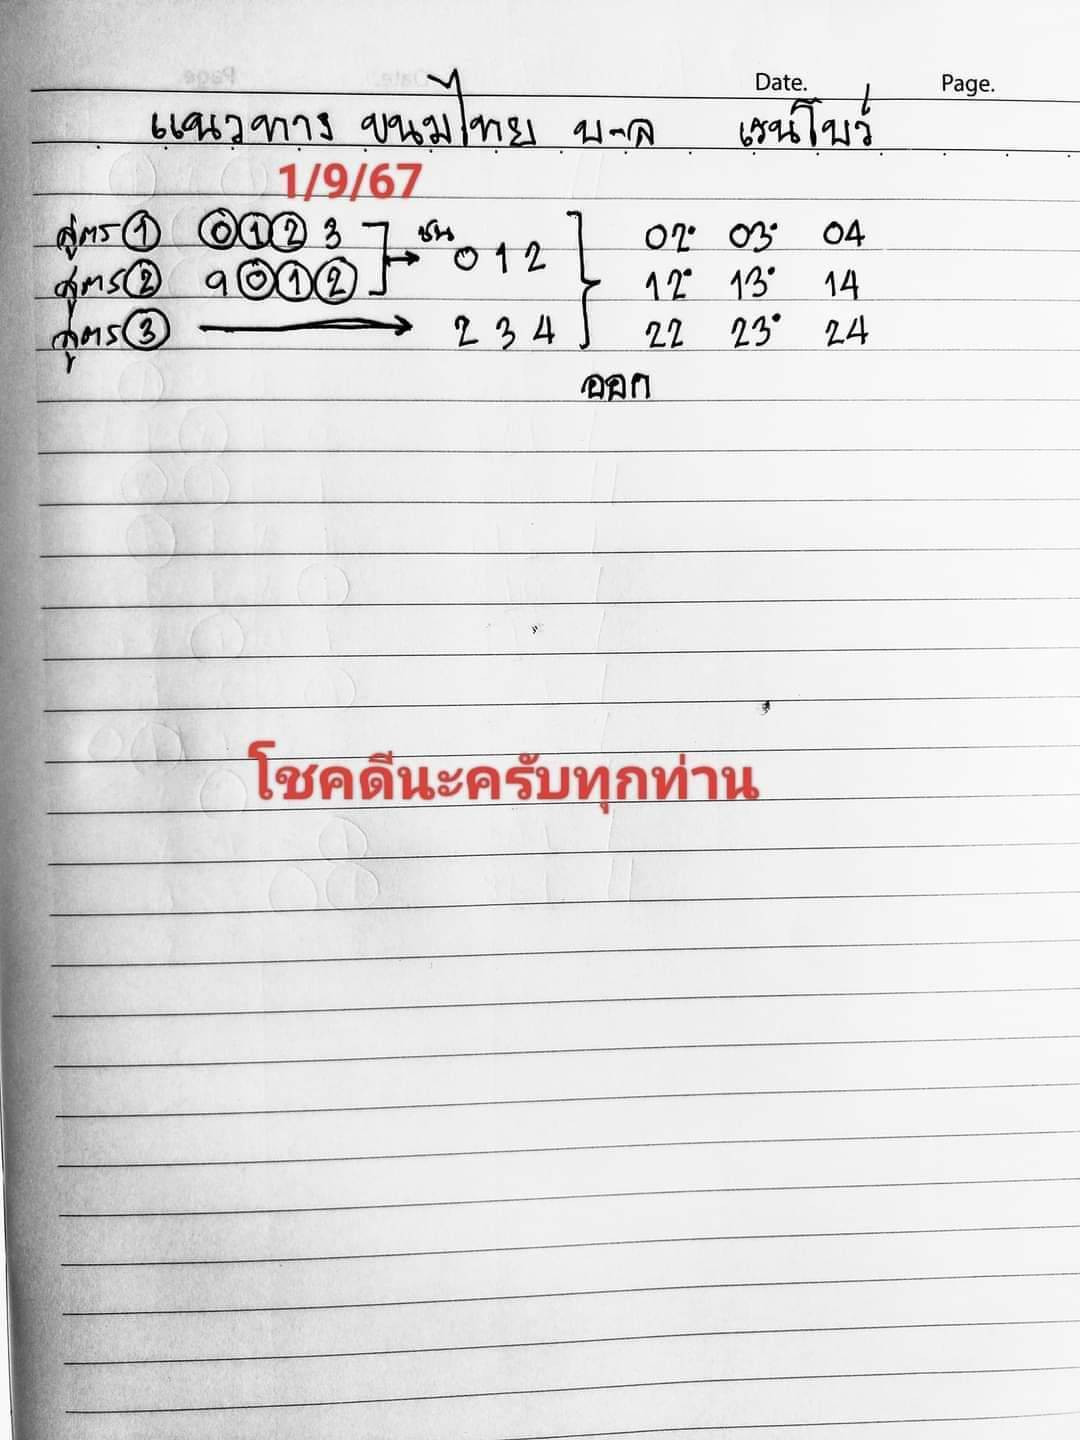 Date. Page.
แนวทาง ขนมไทย บ-ล เรนโบว์
1/9/67
สูตร① ⓪①② 3 ชน 02 03 04
สูตร② 9 ⓪①② → 0 1 2 12 13 14
สูตร③ → 2 3 4 22 23 24
ออก
โชคดีนะครับทุกท่าน